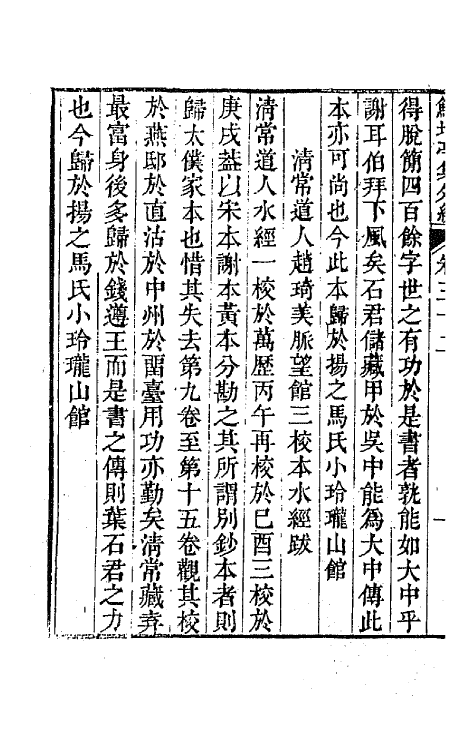 得脫簡四百餘字世之有功於是書者孰能如大中乎
謝耳伯拜下風矣石君儲藏甲於吳中能爲大中傳此
本亦可尚也今此本歸於揚之馬氏小玲瓏山館
清常道人趙琦美脈望館三校本水經跋
清常道人水經一校於萬歷丙午再校於己酉三校於
庚戌蓋以宋本謝本黃本分勘之其所謂別鈔本者則
歸太僕家本也惜其失去第九卷至第十五卷觀其校
於燕邸於直沽於中州於畱臺用功亦勤矣清常藏弆
最富身後多歸於錢遵王而是書之傳則葉石君之力
也今歸於揚之馬氏小玲瓏山館